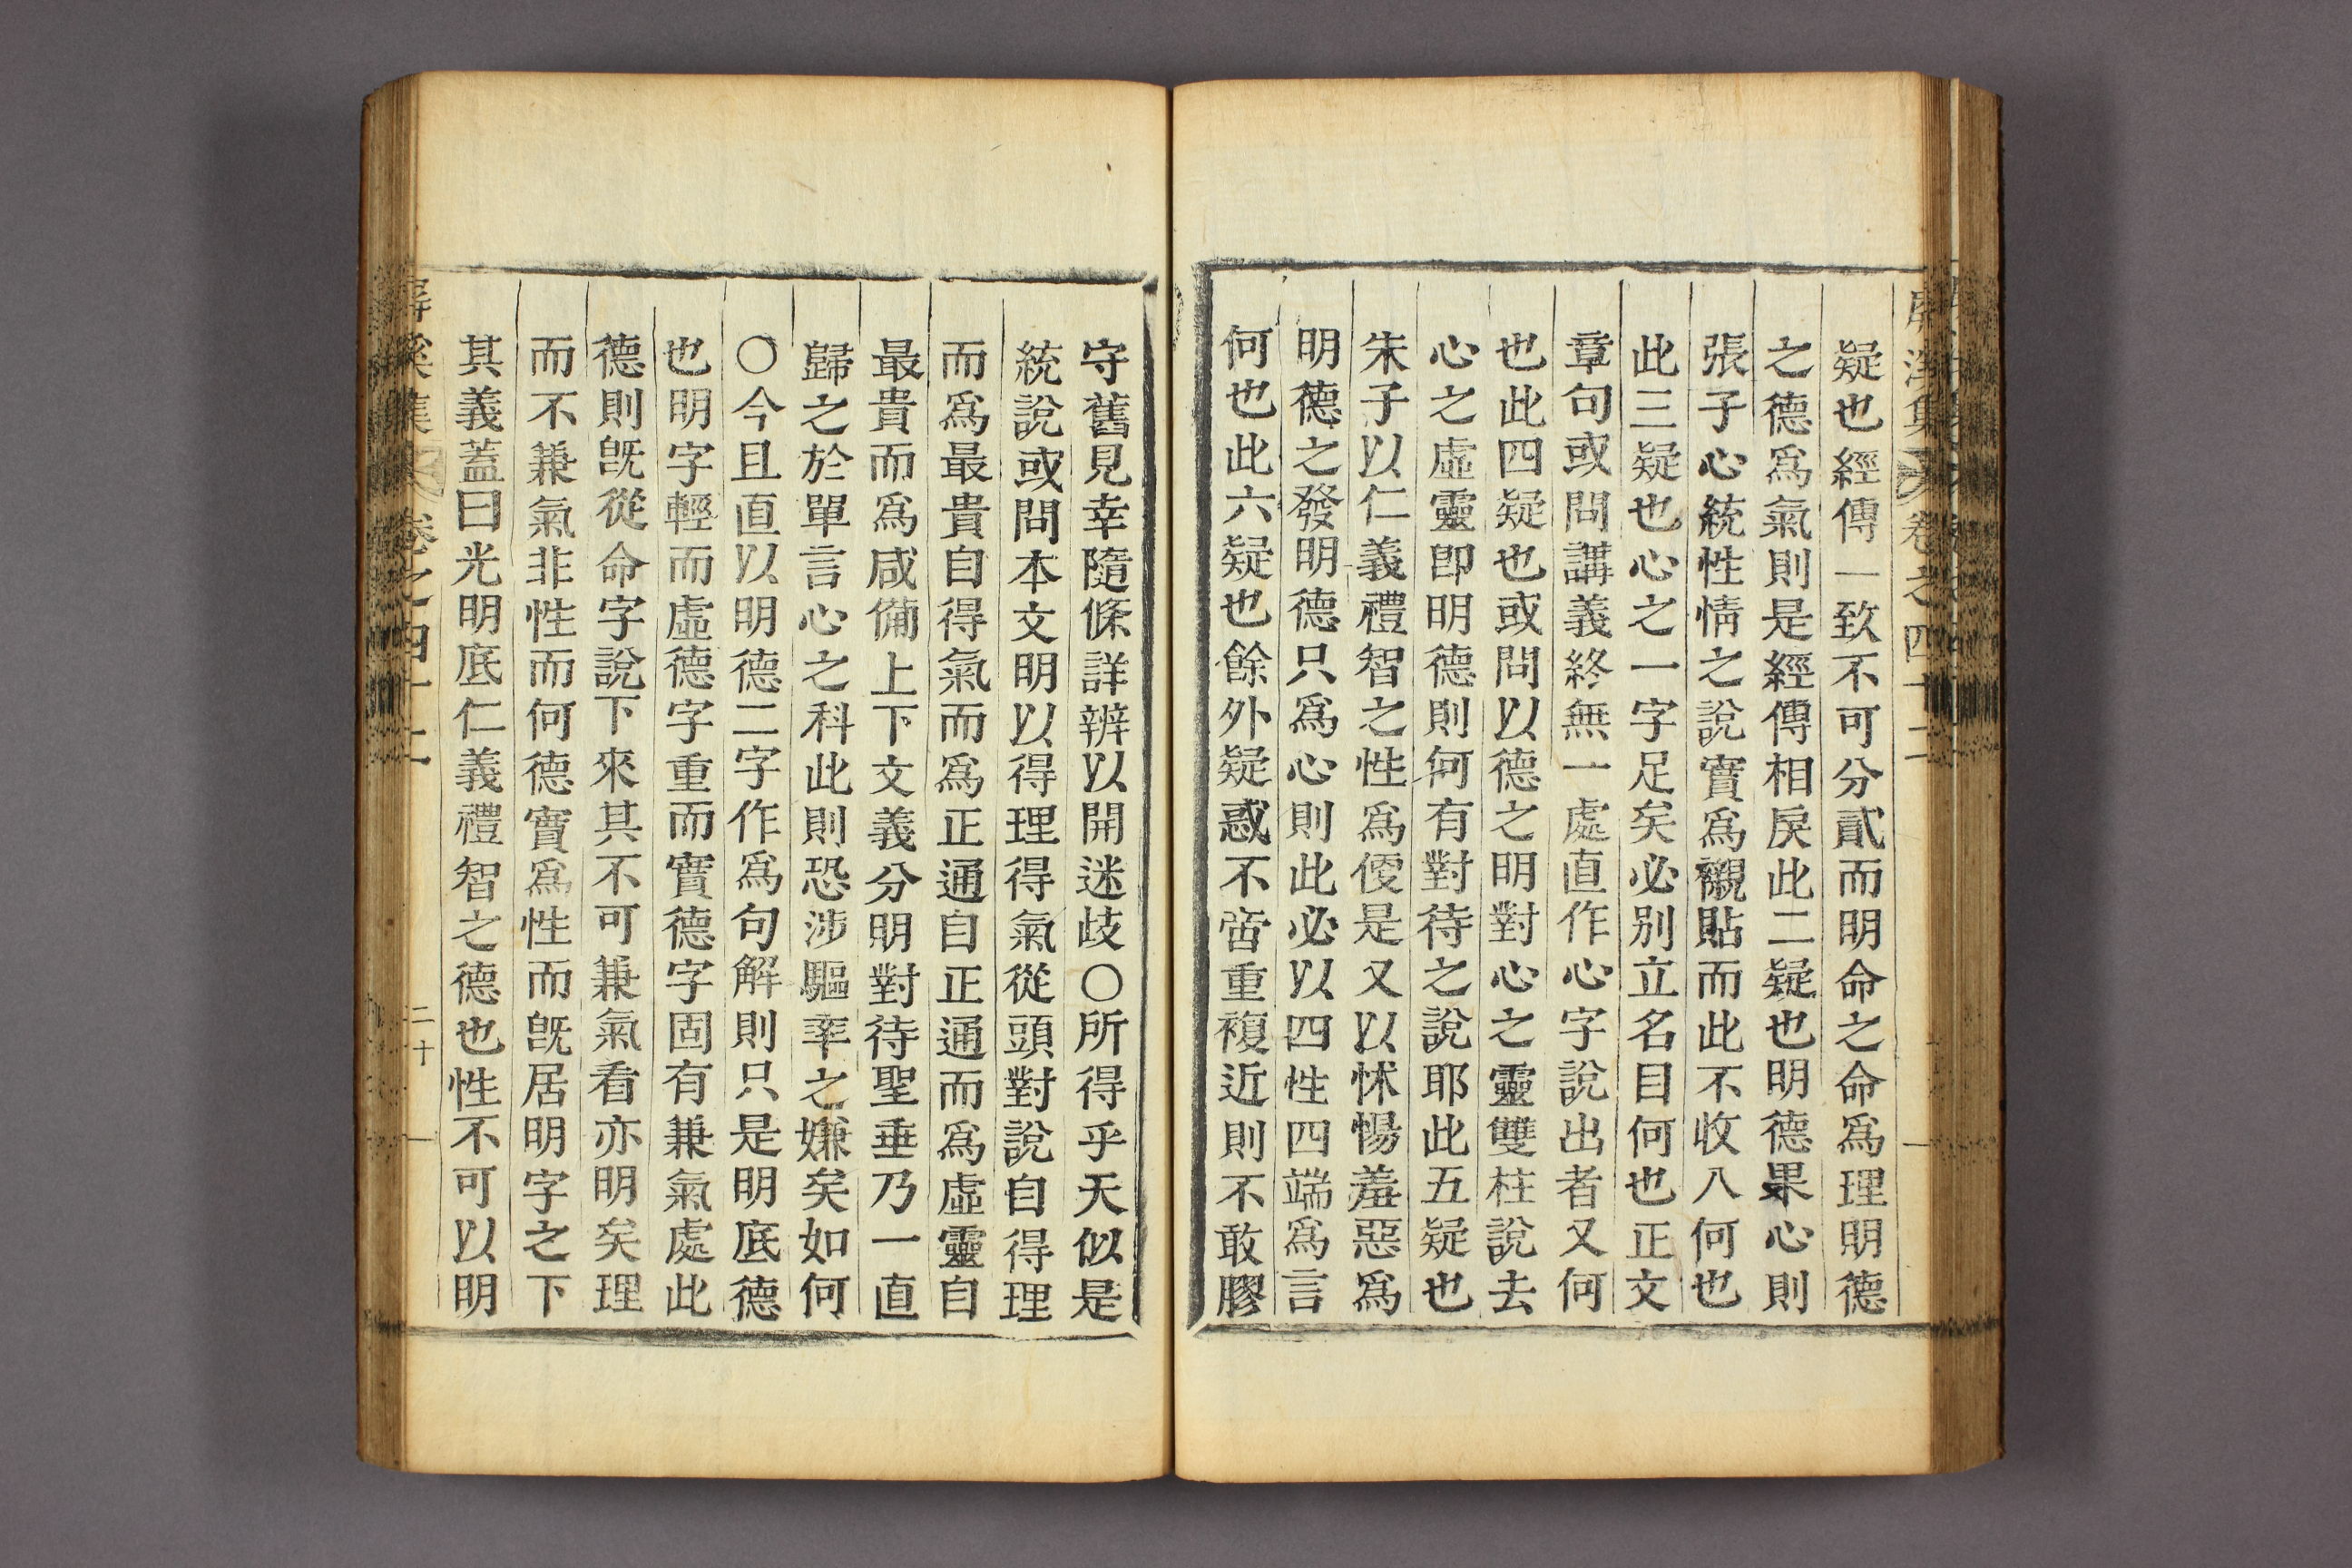 屛溪集 卷之四十二
疑也經傳一致不可分貳而明命之命爲理明德
之德爲氣則是經傳相戾此二疑也明德果心則
張子心統性情之說實爲襯貼而此不收入何也
此三疑也心之一字足矣必别立名目何也正文
章句或問講義終無一處直作心字說出者又何
也此四疑也或問以德之明對心之靈雙柱說去
心之虛靈卽明德則何有對待之說耶此五疑也
朱子以仁義禮智之性爲便是又以怵惕羞惡爲
明德之發明德只爲心則此必以四性四端爲言
何也此六疑也餘外疑惑不啻重複近則不敢膠
守舊見幸隨條詳辨以開迷歧〇所得乎天似是
統說或問本文明以得理得氣從頭對說自得理
而爲最貴自得氣而爲正通自正通而爲虛靈自
最貴而爲咸備上下文義分明對待聖垂乃一直
歸之於單言心之科此則恐涉驅率之嫌矣如何
〇今且直以明德二字作爲句解則只是明底德
也明字輕而虛德字重而實德字固有兼氣處此
德則旣從命字說下來其不可兼氣看亦明矣理
而不兼氣非性而何德實爲性而旣居明字之下
其義蓋曰光明底仁義禮智之德也性不可以明
屛溪集 卷之四十二 二十